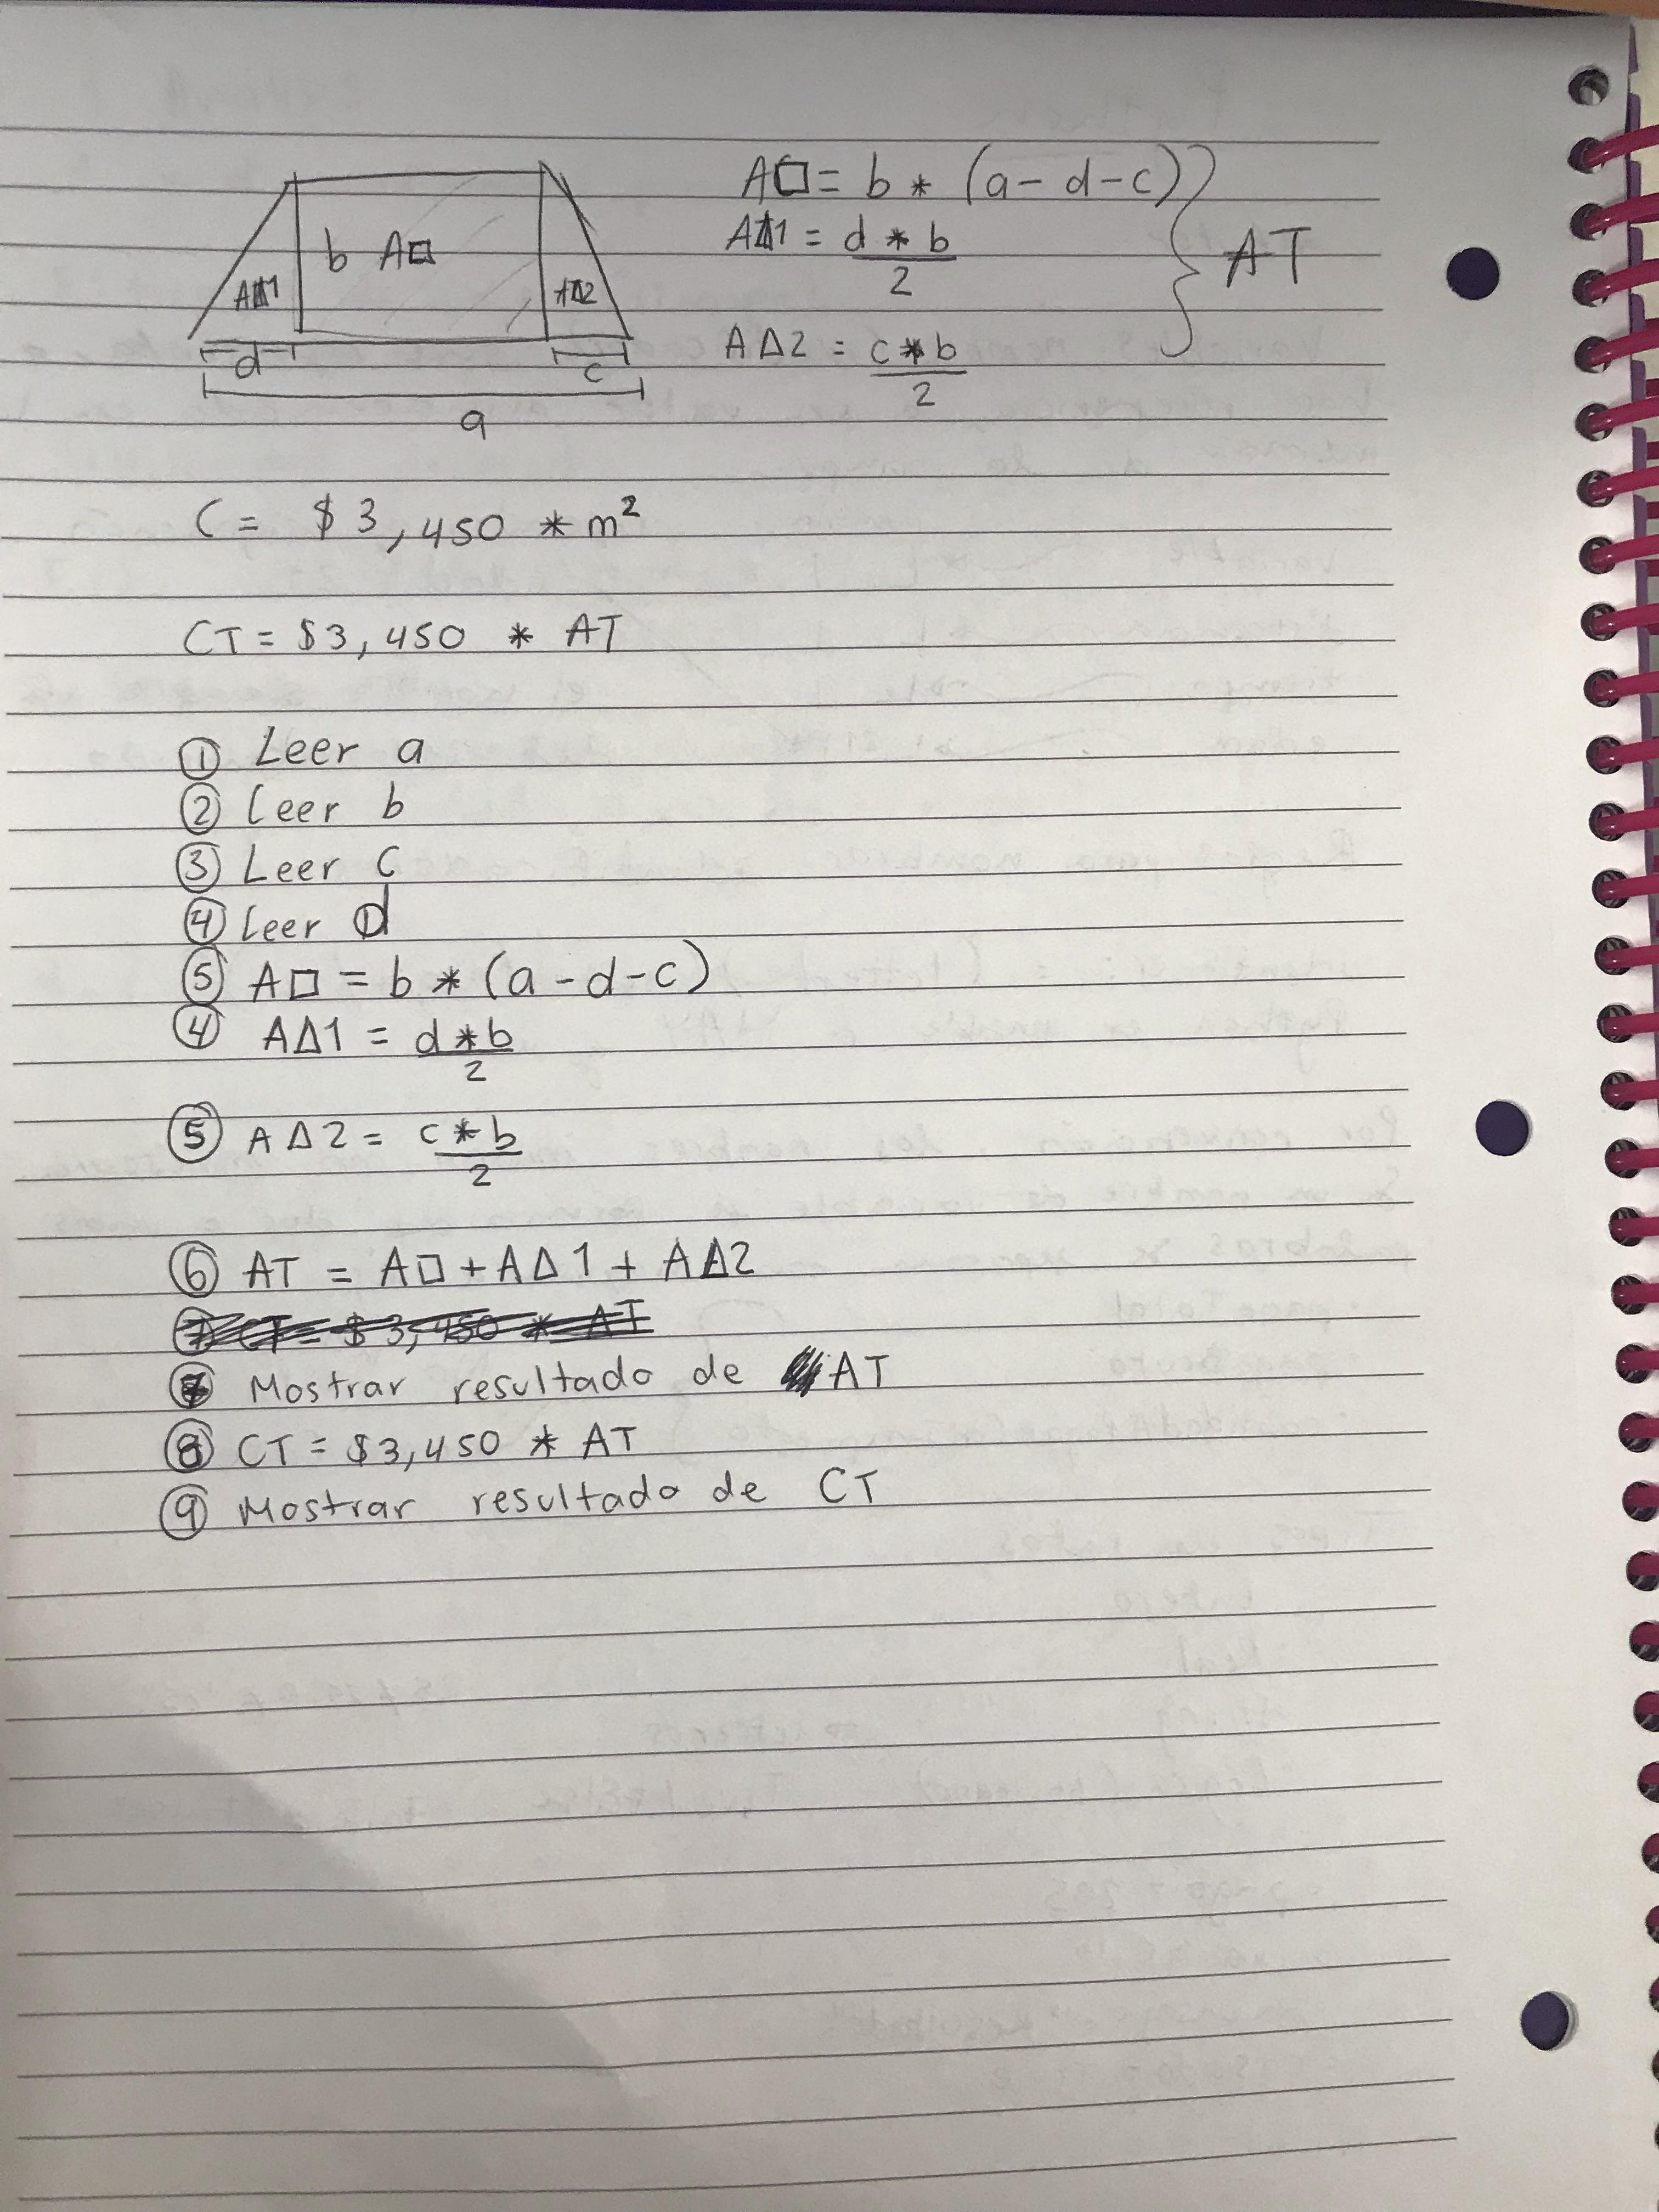 A□ = b * (a - d - c)
AΔ1 = d * b
2
AT
AΔ2 = c * b
2
b A□
AΔ1
AΔ2
d
c
a
C = $3,450 * m²
CT = $3,450 * AT
① Leer a
② Leer b
③ Leer c
④ Leer d
⑤ A□ = b * (a - d - c)
④ AΔ1 = d * b
2
⑤ AΔ2 = c * b
2
⑥ AT = A□ + AΔ1 + AΔ2
⑦ CT = $3,450 * AT
⑦ Mostrar resultado de AT
⑧ CT = $3,450 * AT
⑨ Mostrar resultado de CT